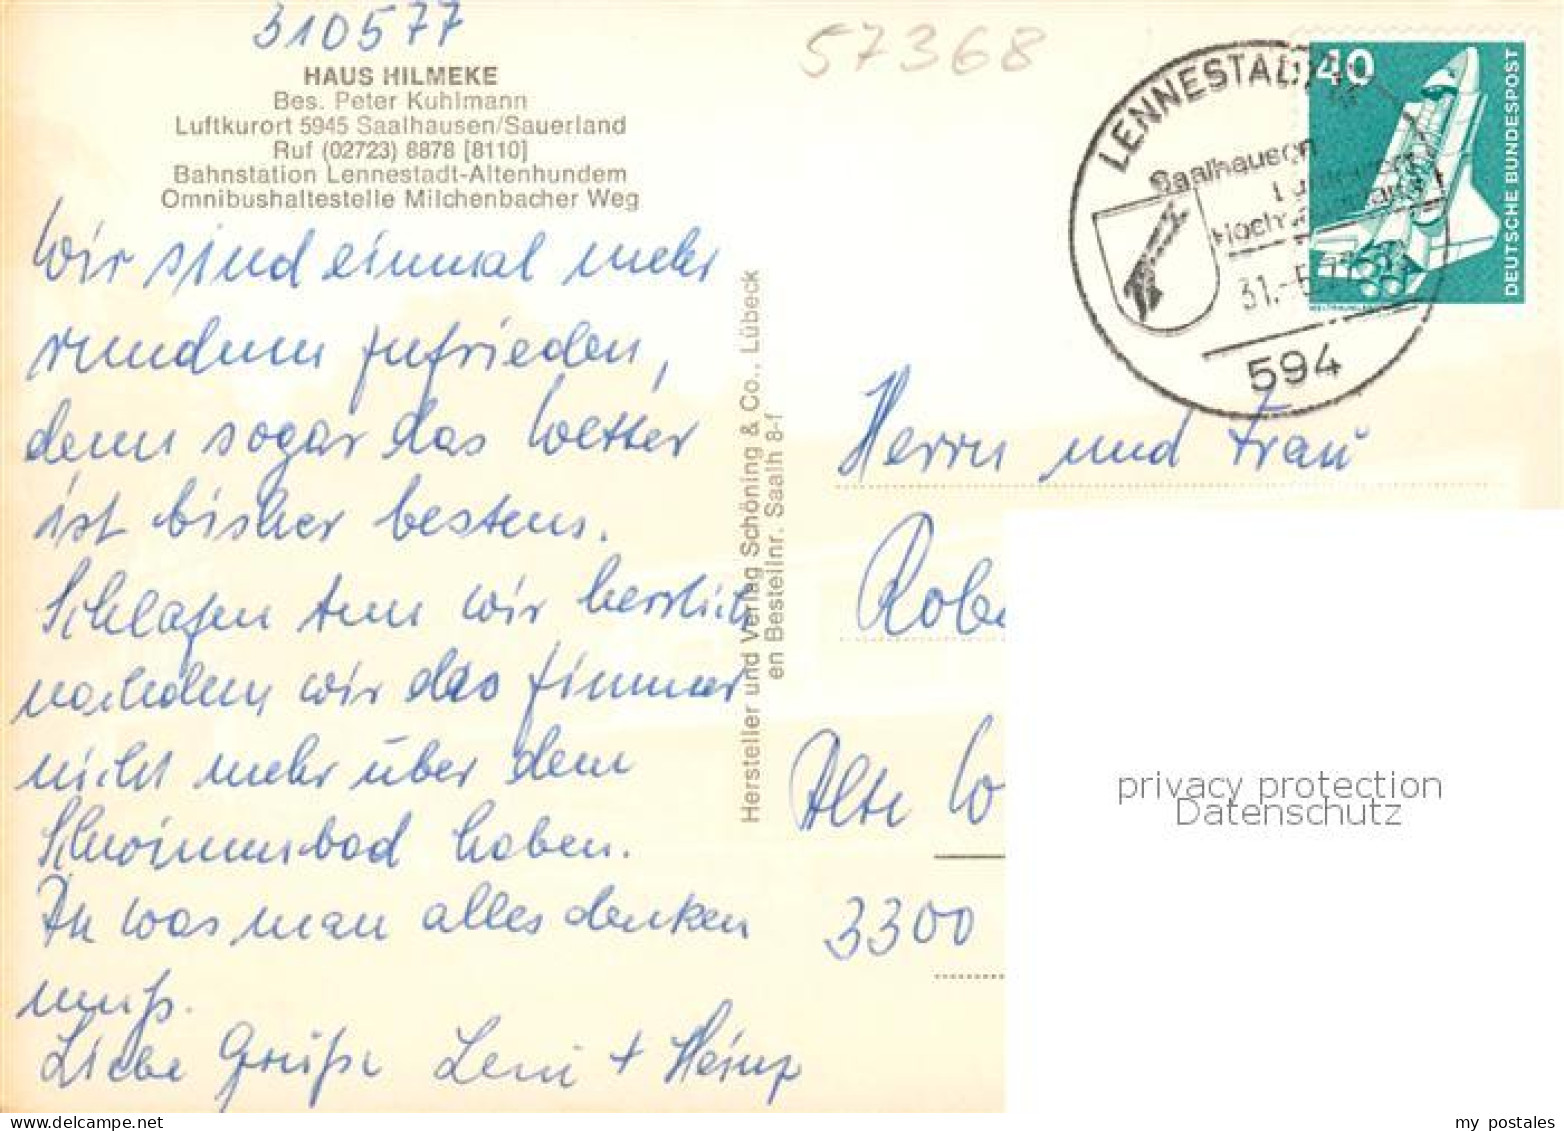 310577
57368
HAUS HILMEKE
Bes. Peter Kuhlmann
Luftkurort 5945 Saalhausen/Sauerland
Ruf (02723) 8878 [8110]
Bahnstation Lennestadt-Altenhundem
Omnibushaltestelle Milchenbacher Weg
Wir sind einmal mehr
rundum zufrieden,
denn sogar das Wetter
ist bisher bestens.
Schlafen tun wir herrlich
nachdem wir das Zimmer
nicht mehr über dem
Schwimmbad haben.
An was man alles denken
muß.
Liebe Grüße Leni + Heinz
Hersteller und Verlag Schöning & Co., Lübeck
en Bestellnr. Saalh 8-f
LENNESTADT
Saalhausen
31.-5.77
594
40
DEUTSCHE BUNDESPOST
Herrn und Frau
Robe
Alte W
3300
privacy protection
Datenschutz
my postales